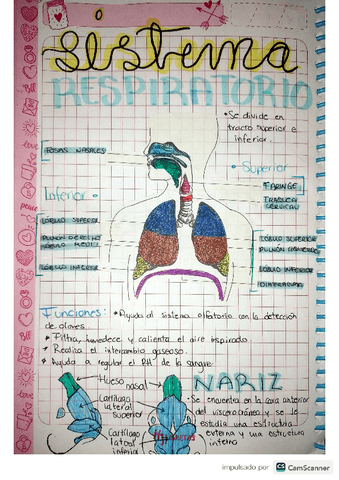 Sistema
RESPIRATORIO
• Se divide en
tracto superior e
inferior.
FOSAS NASALES
• Superior
FARINGE
TRAQUEA
CERVICAL
Inferior •
LÓBULO SUPERIOR
PULMÓN DERECHO
LÓBULO MEDIO
LÓBULO INFERIOR
LÓBULO SUPERIOR
PULMÓN IZQUIERDO
LÓBULO INFERIOR
DIAFRAGMA
Funciones:
• Ayuda al sistema olfatorio con la detección
de olores.
• Filtra, humedece y calienta el aire inspirado.
• Realiza el intercambio gaseoso.
• Ayuda a regular el PH de la sangre.
Hueso
nasal
Cartílago
lateral
superior
Cartílago
lateral
inferior
NARIZ
• Se encuentra en la cara anterior
del viscerocráneo y se le
estudia una estructura
externa y una estructura
interna
love
love
impulsado por CS CamScanner